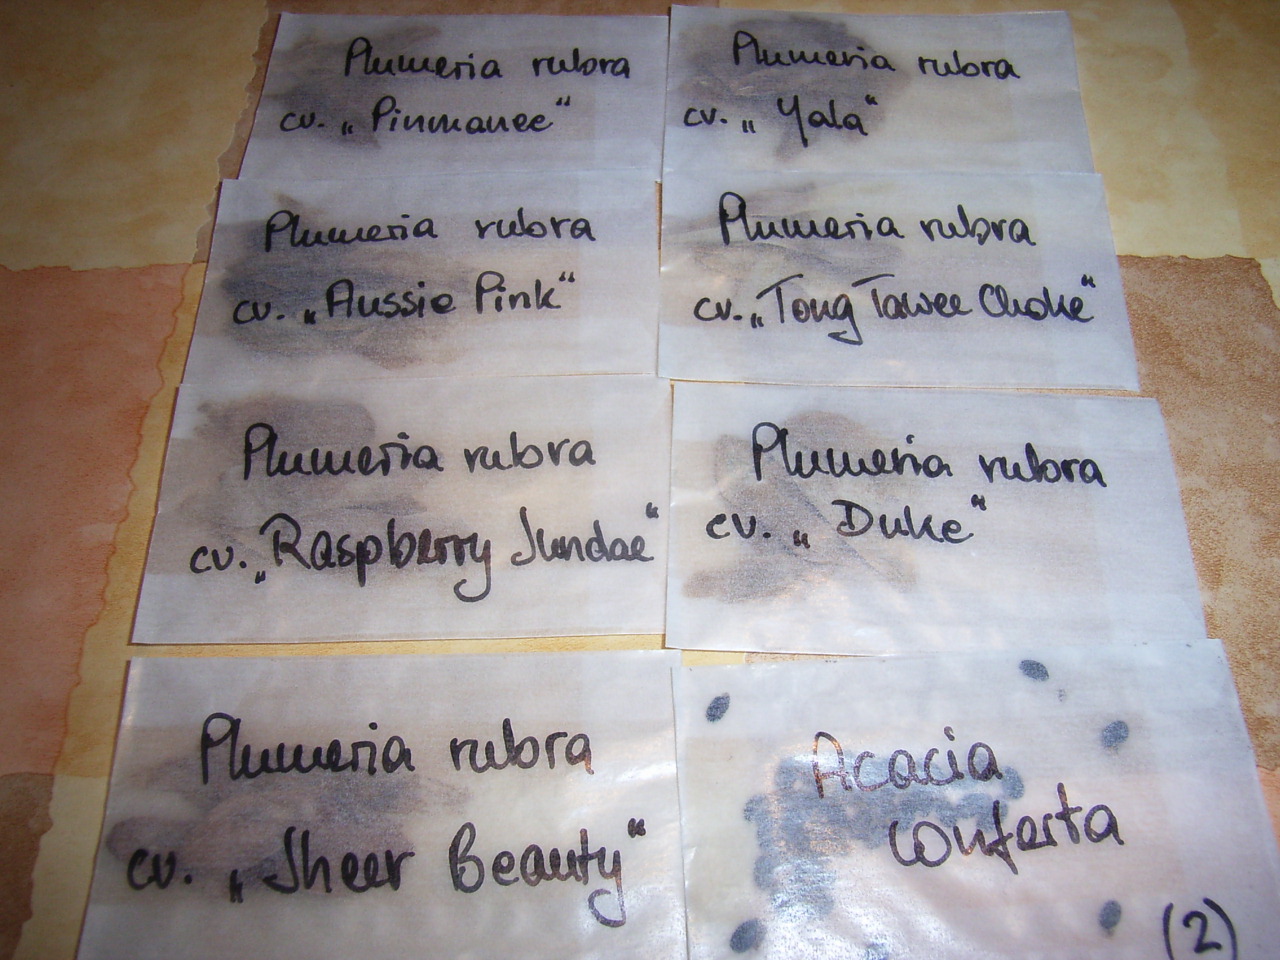 Plumeria rubra
cv. „Pinmanee“
Plumeria rubra
cv. „Yala“
Plumeria rubra
cv. „Aussie Pink“
Plumeria rubra
cv. „Tong Tawee Choke“
Plumeria rubra
cv. „Raspberry Sundae“
Plumeria rubra
cv. „Duke“
Plumeria rubra
cv. „Sheer Beauty“
Acacia
conferta
(2)